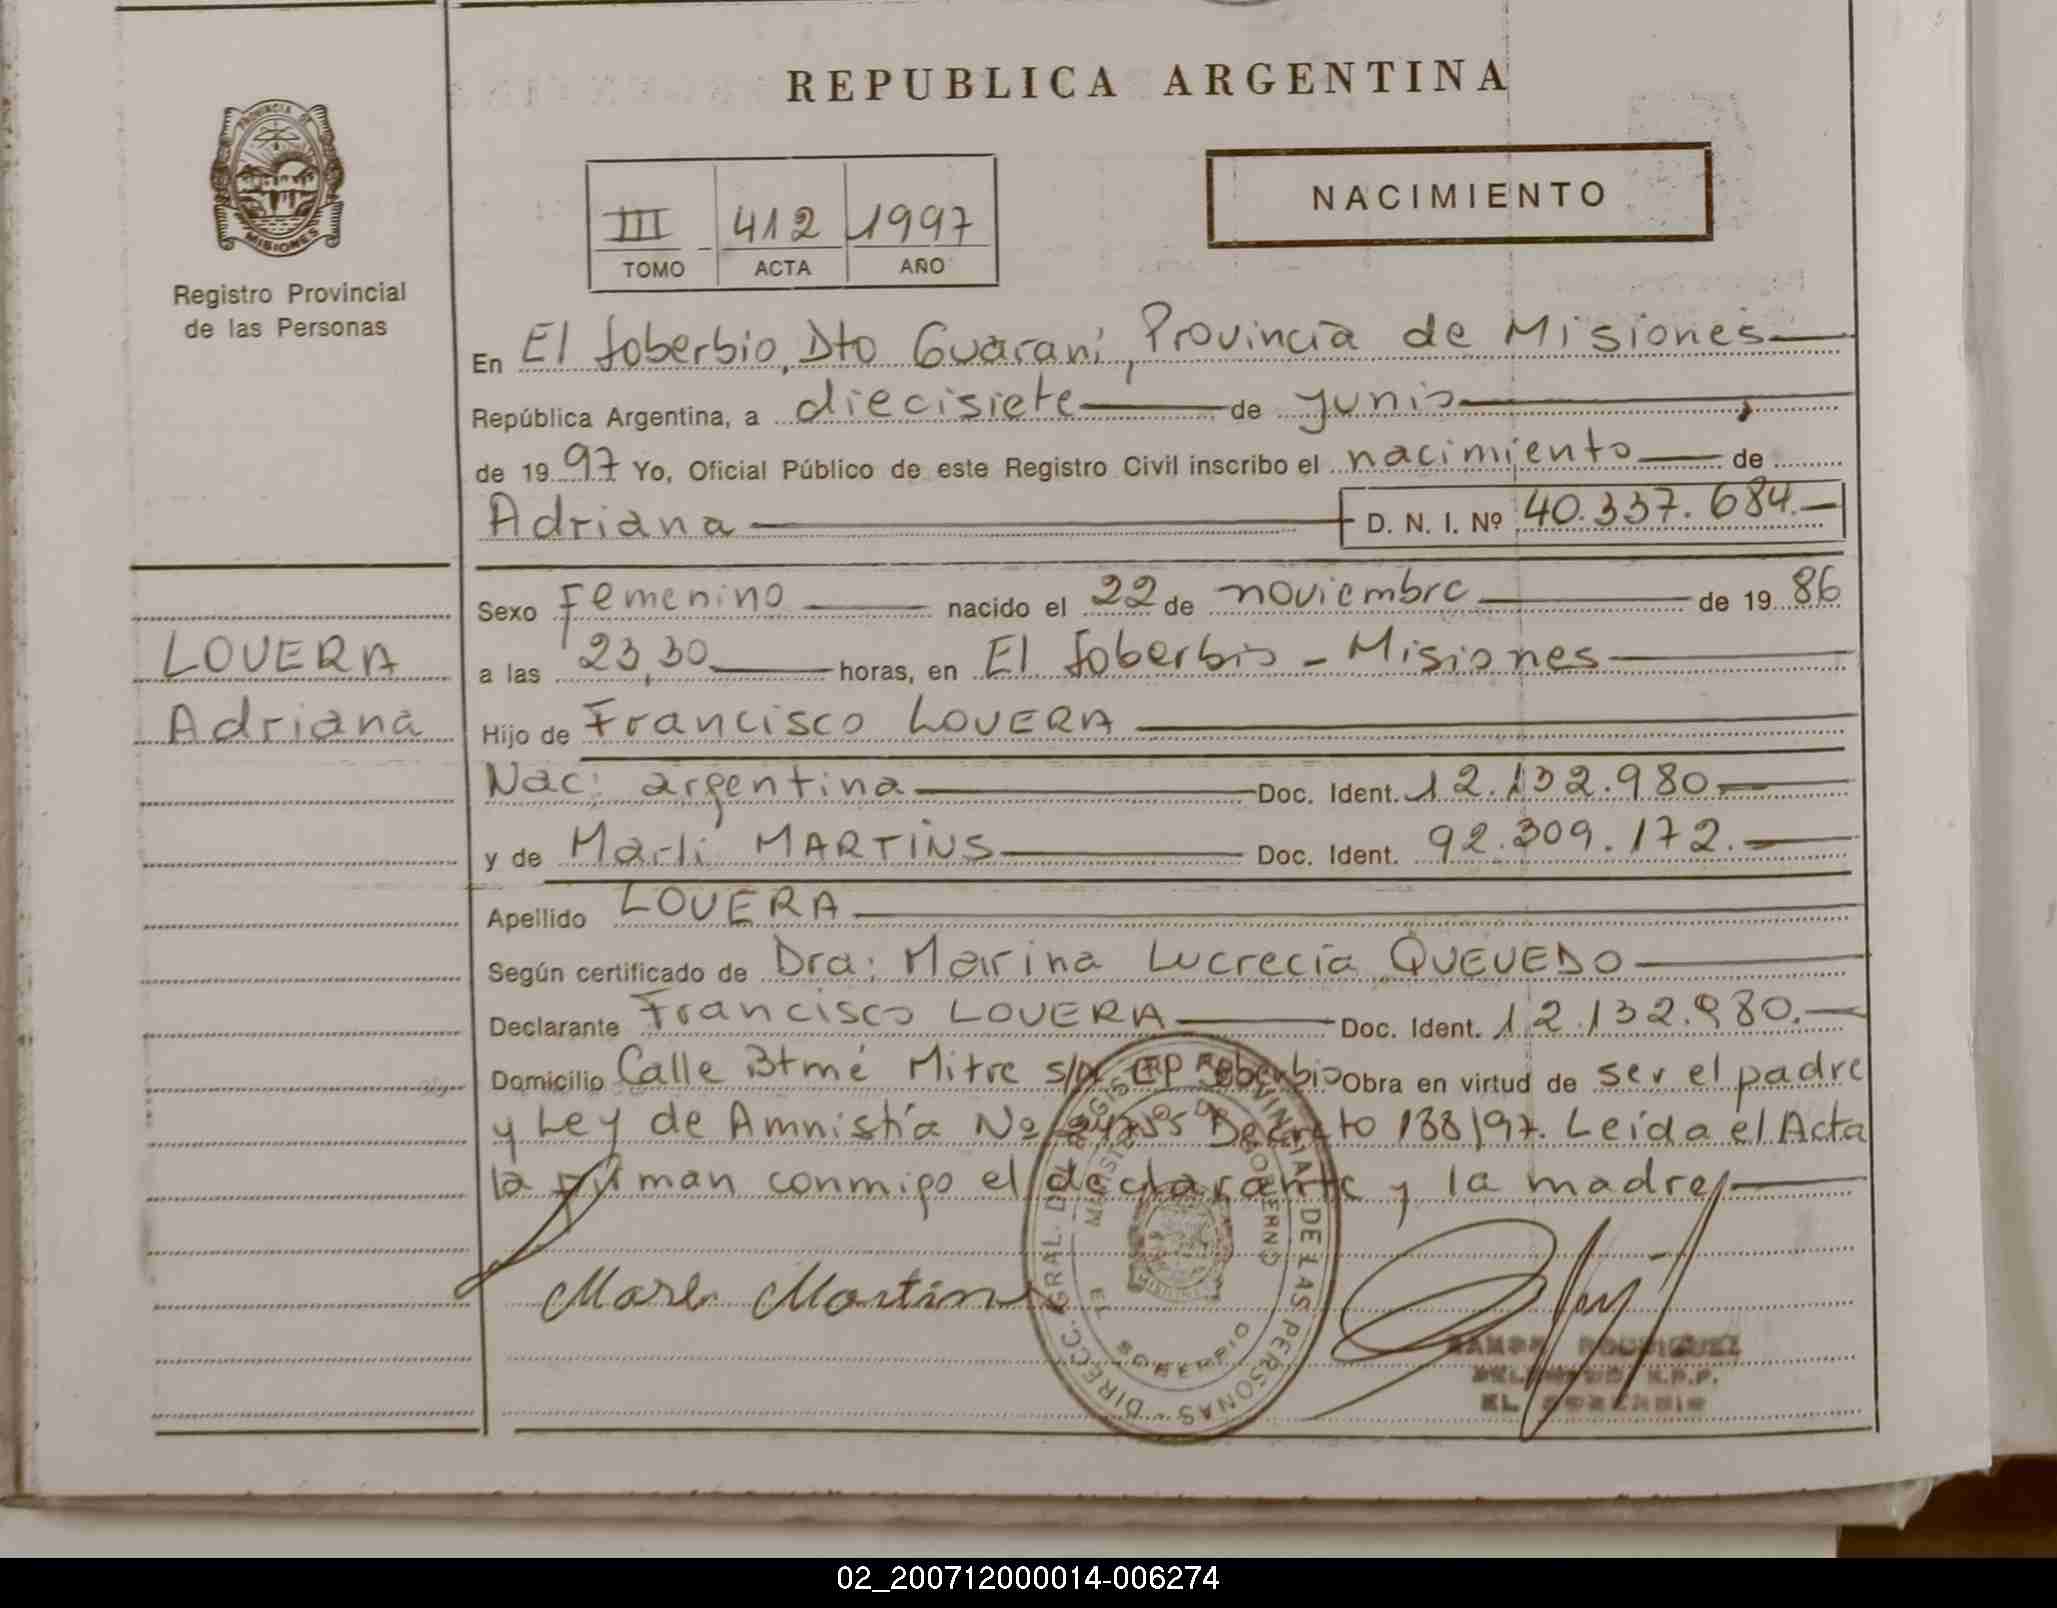 REPUBLICA ARGENTINA
PROVINCIA DE
MISIONES
Registro Provincial
de las Personas
NACIMIENTO
III - 412 1997
TOMO ACTA AÑO
En El Soberbio, Dto Guaraní, Provincia de Misiones
República Argentina, a diecisiete de junio
de 1997 Yo, Oficial Público de este Registro Civil inscribo el nacimiento de
Adriana D. N. I. Nº 40.337.684.
Sexo Femenino nacido el 22 de noviembre de 1986
LOVERA
a las 23,30 horas, en El Soberbio - Misiones
Adriana
Hijo de Francisco LOVERA
Nac: argentina Doc. Ident. 12.132.980
y de Marli MARTINS Doc. Ident. 92.309.172.
Apellido LOVERA
Según certificado de Dra: Marina Lucrecia QUEVEDO
Declarante Francisco LOVERA Doc. Ident. 12.132.980.
Domicilio Calle Btmé Mitre s/n El Soberbio Obra en virtud de ser el padre
y Ley de Amnistía Nº 24755 Decreto 138/97. Leída el Acta
la firman conmigo el declarante y la madre
Marli Martins
DIRECC. GRAL. DEL REGISTRO PROVINCIAL DE LAS PERSONAS
MINISTERIO DE GOBIERNO
EL SOBERBIO
RAMON RODRIGUEZ
DELEGADO R.P.P.
EL SOBERBIO
02_200712000014-006274